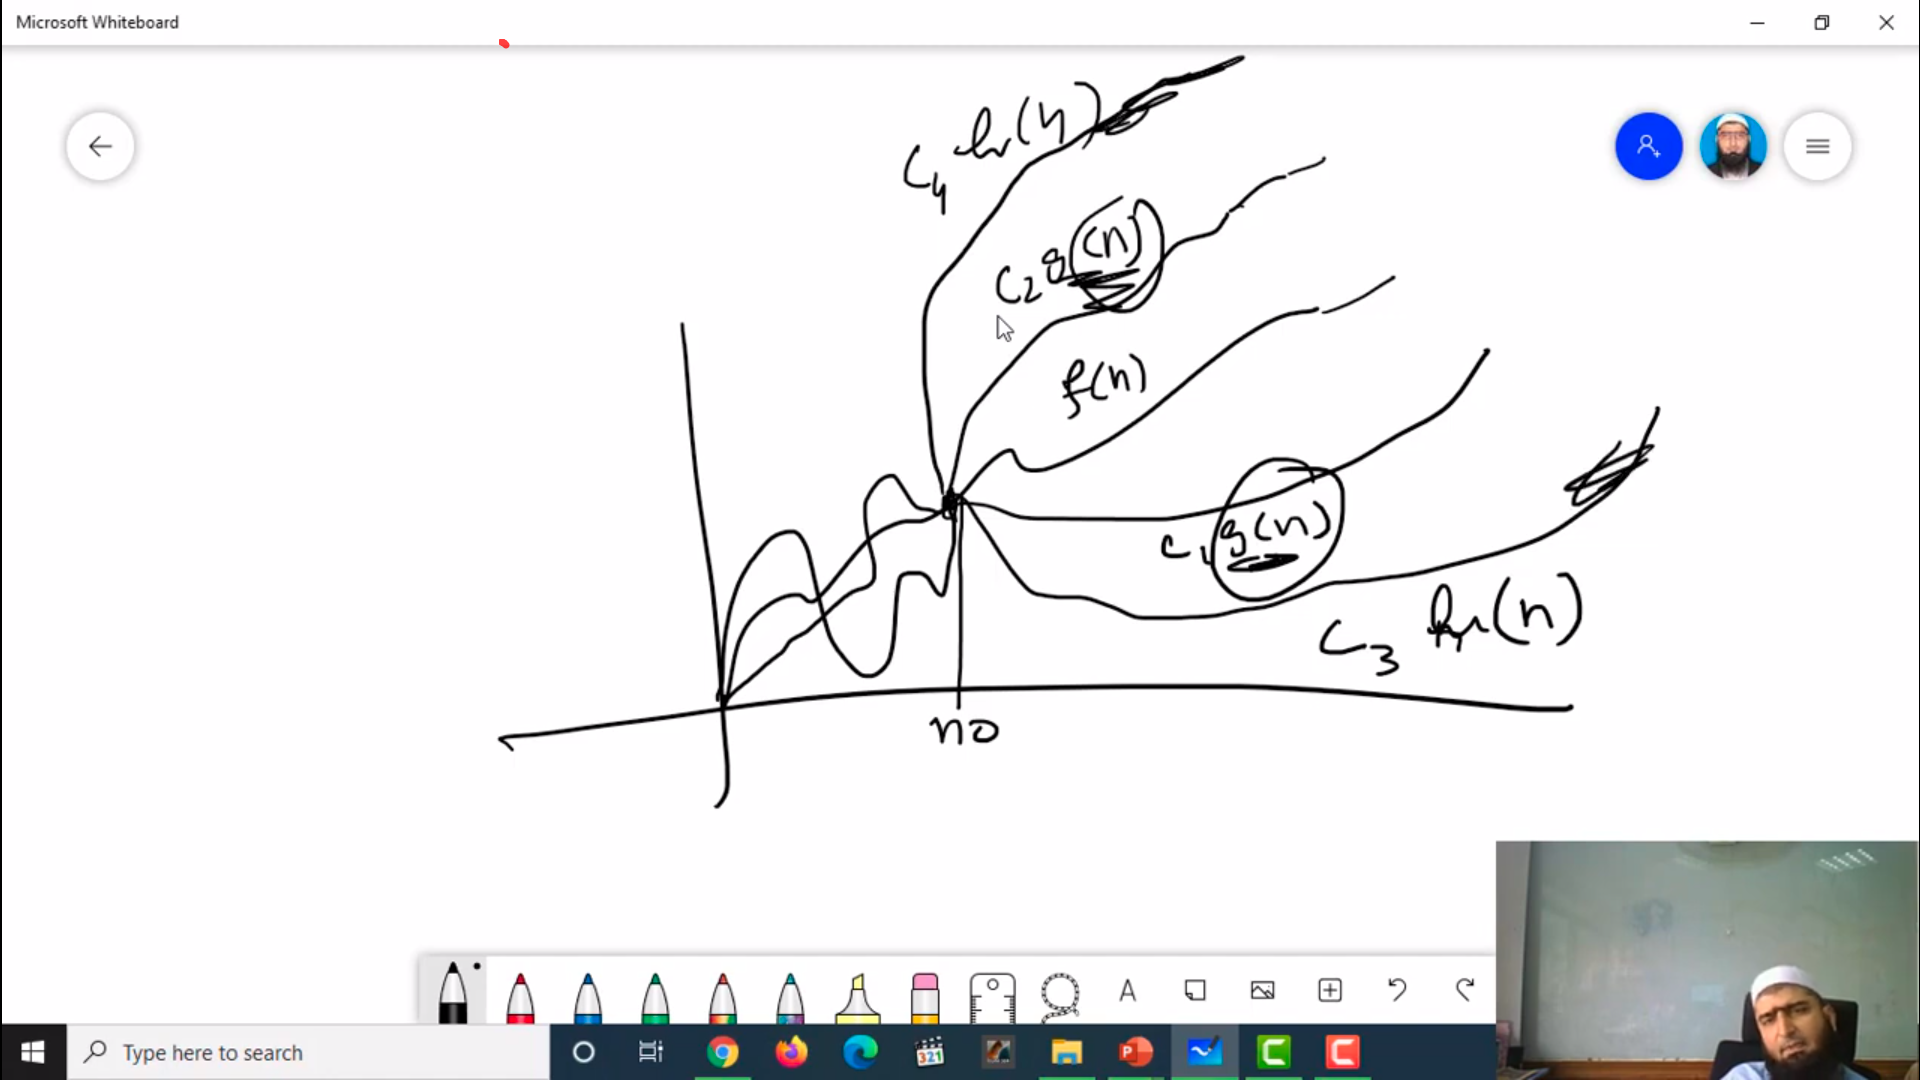 Microsoft Whiteboard
C4 h(n)
C2 g(n)
f(n)
C1 g(n)
C3 h(n)
no
A
321
P
C
C
Type here to search